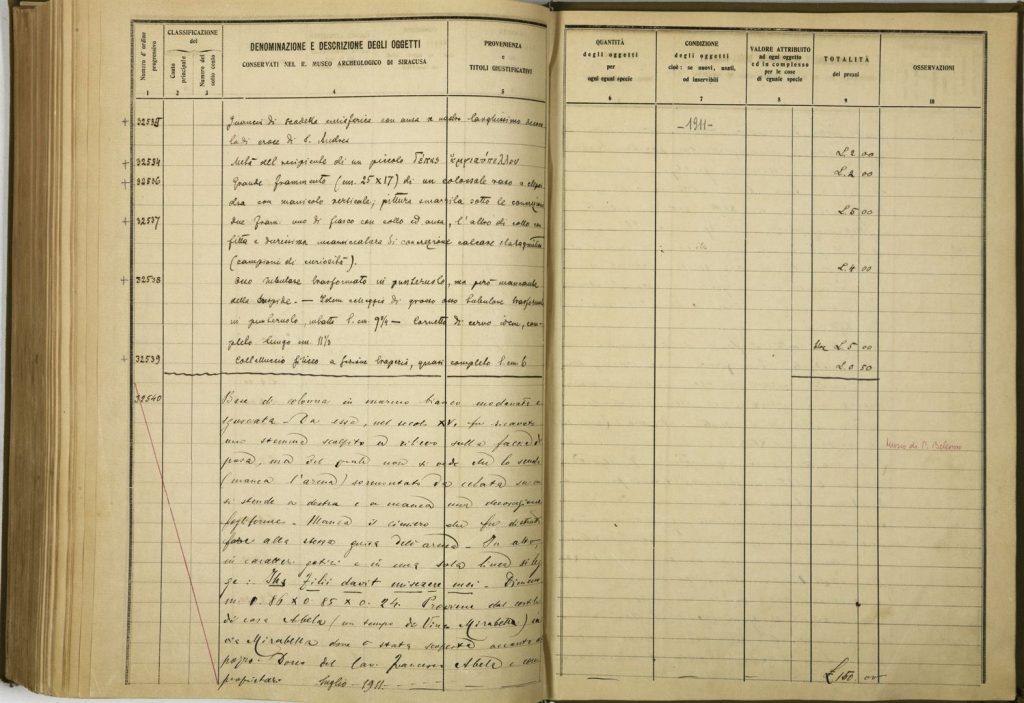 Numero d'ordine progressivo
CLASSIFICAZIONE del
Conto principale
Numero del sotto conto
DENOMINAZIONE E DESCRIZIONE DEGLI OGGETTI
CONSERVATI NEL R. MUSEO ARCHEOLOGICO DI SIRACUSA
PROVENIENZA
e
TITOLI GIUSTIFICATIVI
1 2 3 4 5
di scodella emisferica con ansa a nastro larghissimo
di croce di S. Andrea
+ 32534 Metà del recipiente di un piccolo
+ 32536 Grande frammento (cm. 25 x 17) di un colossale vaso a
con manico verticale; pittura sotto le concrezioni
+ 32537 due fram. uno di fiasco con collo ed ansa, l'altro di collo con
fitta e durissima di concrezione calcare
(campioni di curiosità).
+ 32538 Osso tubulare trasformato in punteruolo, ma però mancante
della . — Idem di grosso osso tubulare trasformato
in punteruolo, l. cm. 9¼ — Cornetto di cervo idem, com-
pleto lungo cm. 11½
+ 32539 Coltelluccio siliceo a sezione , quasi completo l. cm 6
32540 Base di colonna in marmo bianco modanata e
. Da essa, nel secolo XV, fu ricavato
uno stemma scolpito a rilievo sulla faccia di
posa, ma del quale non si vede che lo scudo
(manca l'arma) sormontato da celata su cui
si stende a destra e a manca una decorazione
. Manca il cimiero che fu
alla stessa guisa dell'arma. In alto,
in caratteri gotici e in una sola linea si leg-
ge: Ihs filii davit miserere mei. Dimens.
m. 0.86 x 0.85 x 0.24. Proviene dal cortile
di casa Abela (un tempo de Mirabella) in
via Mirabella dove è stata scoperta accanto al
pozzo. Dono del Cav. Francesco Abela
proprietario Luglio - 1911.
QUANTITÀ
degli oggetti
per
ogni egual specie
CONDIZIONE
degli oggetti
cioè: se nuovi, usati,
od inservibili
VALORE ATTRIBUITO
ad ogni oggetto
ed in complesso
per le cose
di eguale specie
TOTALITÀ
dei prezzi
OSSERVAZIONI
6 7 8 9 10
- 1911 -
L. 2 00
L. 2 00
L. 5 00
L. 4 00
L. 5 00
L. 0 50
Museo di P. Bellomo
L. 150 00